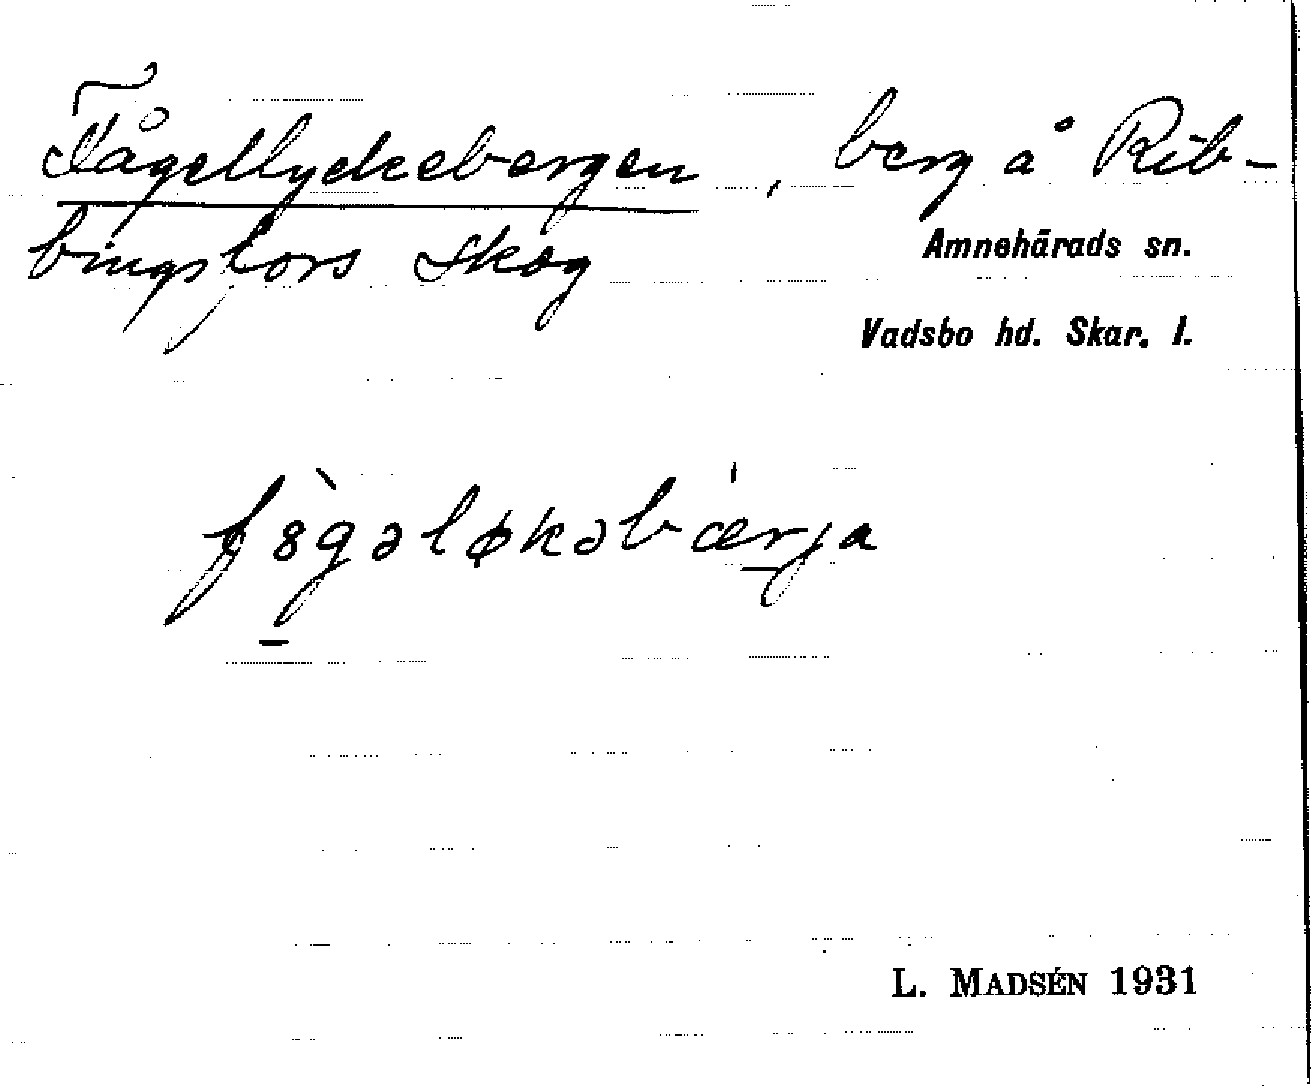 Fågellyckebergen, berg å Rib-
bingsfors Skog
Amnehärads sn.
Vadsbo hd. Skar. l.
f8̀gəløkəbæ̍rja
L. MADSÉN 1931